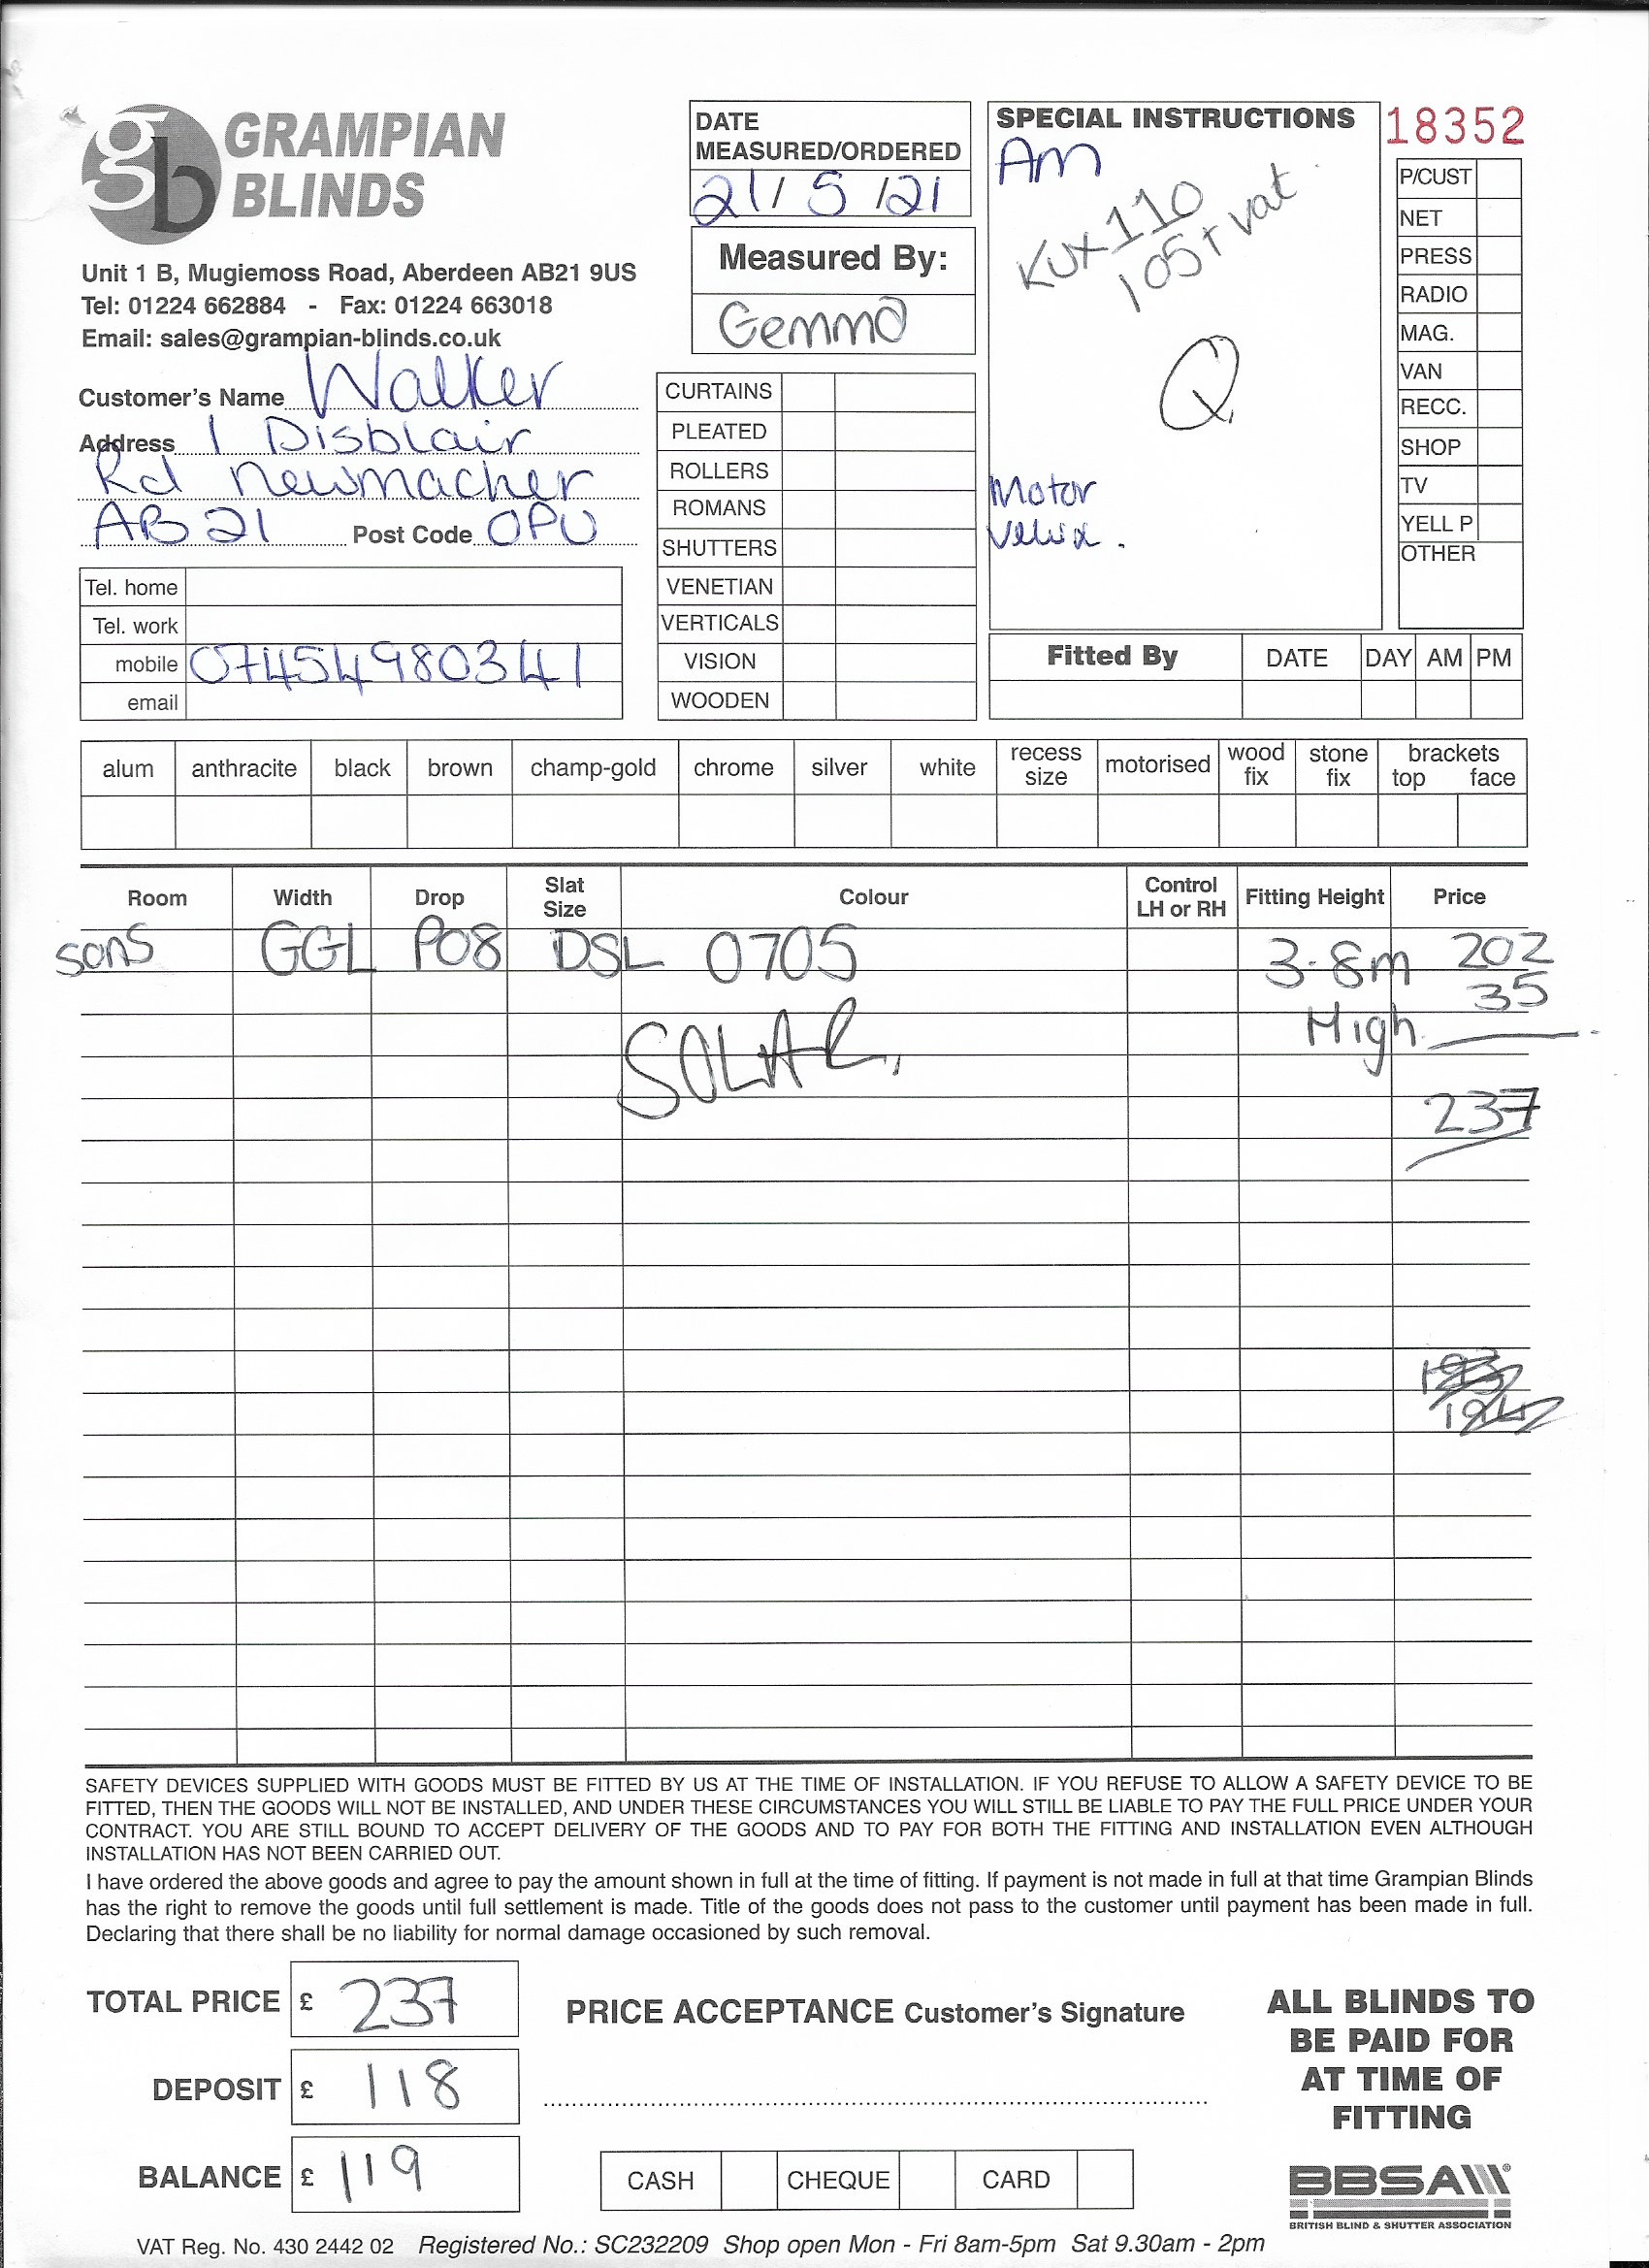 gb GRAMPIAN
BLINDS
Unit 1 B, Mugiemoss Road, Aberdeen AB21 9US
Tel: 01224 662884 - Fax: 01224 663018
Email: sales@grampian-blinds.co.uk
Customer's Name Walker
Address 1 Disblair
Rd Newmacher
AB21 Post Code 0PU
Tel. home
Tel. work
mobile 07454980341
email
DATE
MEASURED/ORDERED
21/5/21
Measured By:
Gemma
CURTAINS
PLEATED
ROLLERS
ROMANS
SHUTTERS
VENETIAN
VERTICALS
VISION
WOODEN
SPECIAL INSTRUCTIONS
Am
KUX 110
105+ vat
Q
Motor
Velux.
18352
P/CUST
NET
PRESS
RADIO
MAG.
VAN
RECC.
SHOP
TV
YELL P
OTHER
Fitted By DATE DAY AM PM
alum anthracite black brown champ-gold chrome silver white recess size motorised wood fix stone fix brackets top face
Room Width Drop Slat Size Colour Control LH or RH Fitting Height Price
sons GGL P08 DSL 0705 3.8m 202
35
SOLAR, High
237
SAFETY DEVICES SUPPLIED WITH GOODS MUST BE FITTED BY US AT THE TIME OF INSTALLATION. IF YOU REFUSE TO ALLOW A SAFETY DEVICE TO BE
FITTED, THEN THE GOODS WILL NOT BE INSTALLED, AND UNDER THESE CIRCUMSTANCES YOU WILL STILL BE LIABLE TO PAY THE FULL PRICE UNDER YOUR
CONTRACT. YOU ARE STILL BOUND TO ACCEPT DELIVERY OF THE GOODS AND TO PAY FOR BOTH THE FITTING AND INSTALLATION EVEN ALTHOUGH
INSTALLATION HAS NOT BEEN CARRIED OUT.
I have ordered the above goods and agree to pay the amount shown in full at the time of fitting. If payment is not made in full at that time Grampian Blinds
has the right to remove the goods until full settlement is made. Title of the goods does not pass to the customer until payment has been made in full.
Declaring that there shall be no liability for normal damage occasioned by such removal.
TOTAL PRICE £ 237
DEPOSIT £ 118
BALANCE £ 119
PRICE ACCEPTANCE Customer's Signature
CASH CHEQUE CARD
ALL BLINDS TO
BE PAID FOR
AT TIME OF
FITTING
BBSA
BRITISH BLIND & SHUTTER ASSOCIATION
VAT Reg. No. 430 2442 02 Registered No.: SC232209 Shop open Mon - Fri 8am-5pm Sat 9.30am - 2pm